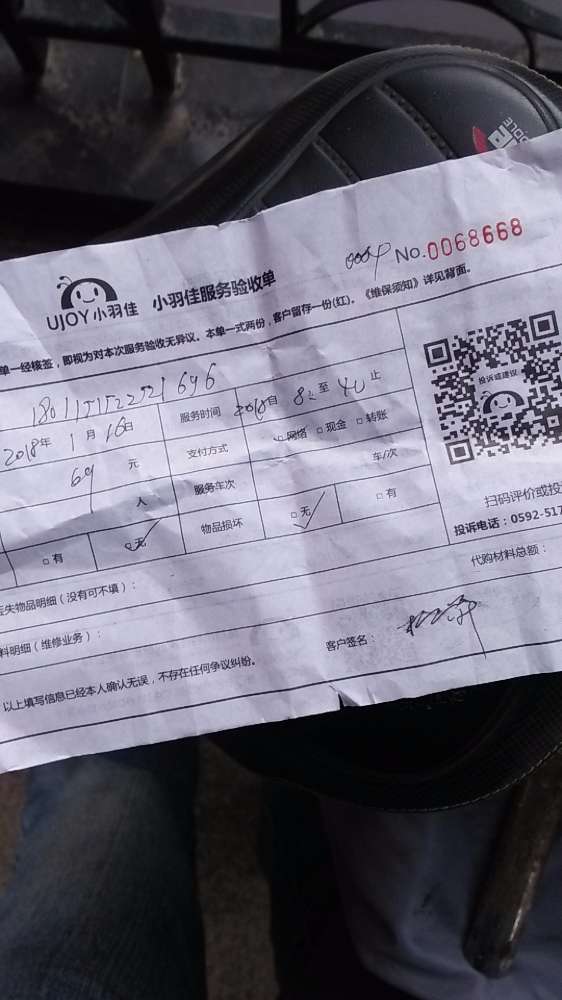 UJOY小羽佳 小羽佳服务验收单 No.0068668
单一经核签，即视为对本次服务验收无异议。本单一式两份，客户留存一份(红)。《维保须知》详见背面。
2018年1月16日 服务时间 止
69元 支付方式 □网络 □现金 □转账
人 服务车次 车/次
□有 □无 物品损坏 □无 □有
投诉或建议
扫码评价或投
投诉电话：0592-517
丢失物品明细（没有可不填）：
代购材料总额：
料明细（维修业务）：
客户签名：
以上填写信息已经本人确认无误，不存在任何争议纠纷。